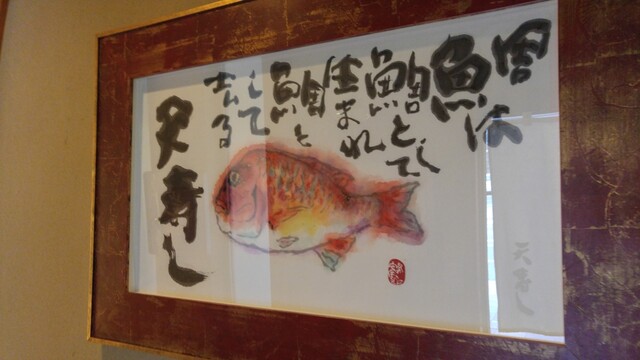 鯛は
鯛として
生まれ
鯛と
して
去る
天寿し
天寿し